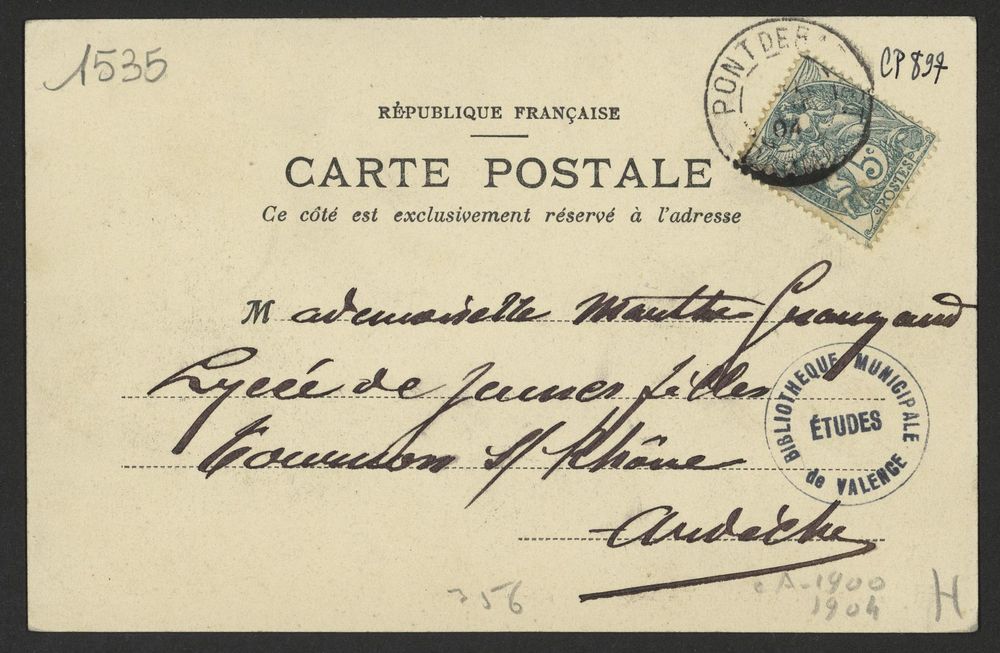 1535
CP 897
PONT DE
04
5c
POSTES
RÉPUBLIQUE FRANÇAISE
CARTE POSTALE
Ce côté est exclusivement réservé à l'adresse
Mademoiselle Marthe
Lycée de Jeunes filles
Tournon s/ Rhône
Ardèche
BIBLIOTHEQUE MUNICIPALE
ÉTUDES
de VALENCE
356
1900
1904
H